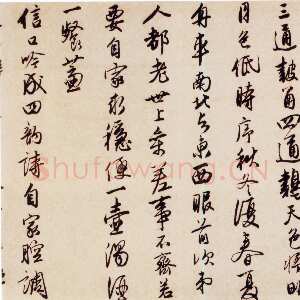 三通皷角四通鷄天色將明
月色低時序秋冬復春夏
舟車南北与東西眼前次第
人都老世上參差事不齊若
要自家求穩便一壺濁酒
一餐虀
信口吟成四韵詩自家腔調
Shufawang.CN